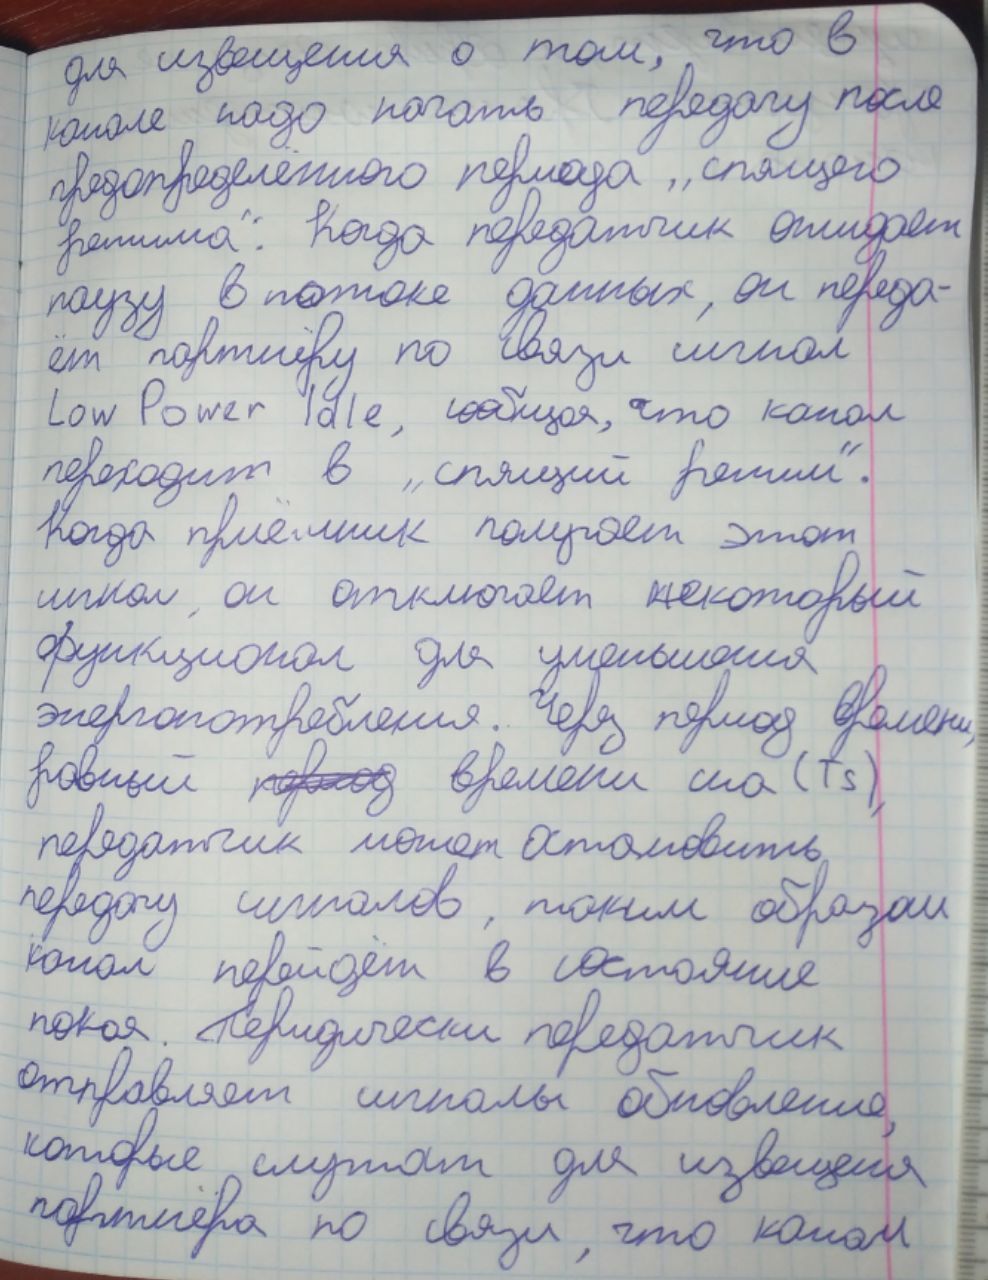 для извещения о том, что в
канале надо начать передачу после
предопределённого периода „спящего
режима“. Когда передатчик ожидает
паузу в потоке данных, он переда-
ёт партнёру по связи сигнал
Low Power Idle, сообщая, что канал
переходит в „спящий режим“.
Когда приёмник получает этот
сигнал, он отключает некоторый
функционал для уменьшения
энергопотребления. Через период времени,
равный период времени сна (Ts),
передатчик может остановить
передачу сигналов, таким образом
канал перейдёт в состояние
покоя. Периодически передатчик
отправляет сигналы обновление,
которые служат для извещения
партнёра по связи, что канал